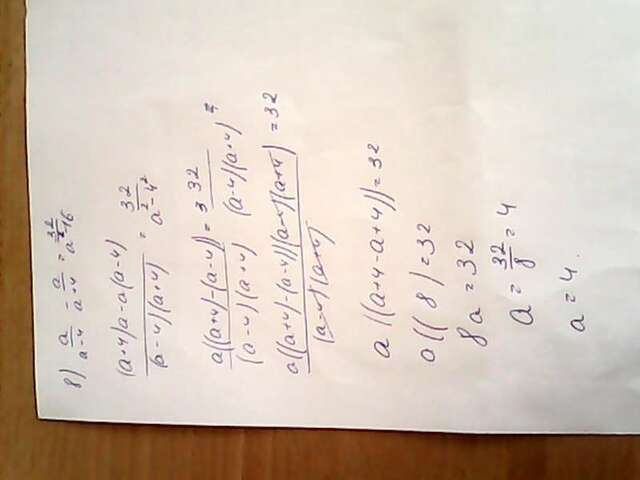 8) a/(a-4) - a/(a+4) = 32/(a²-16)
((a+4)a-a(a-4))/((a-4)(a+4)) = 32/(a²-4²)
a((a+4)-(a-4))/((a-4)(a+4)) = 32/((a-4)(a+4))
a((a+4)-(a-4))(a-4)(a+4)/((a-4)(a+4)) = 32
a((a+4-a+4))=32
a((8)=32
8a=32
a = 32/8 = 4
a = 4.